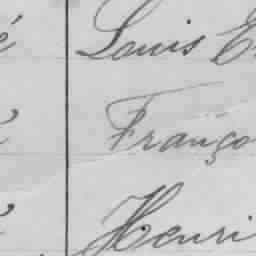 é Louis E
Franço
Henri